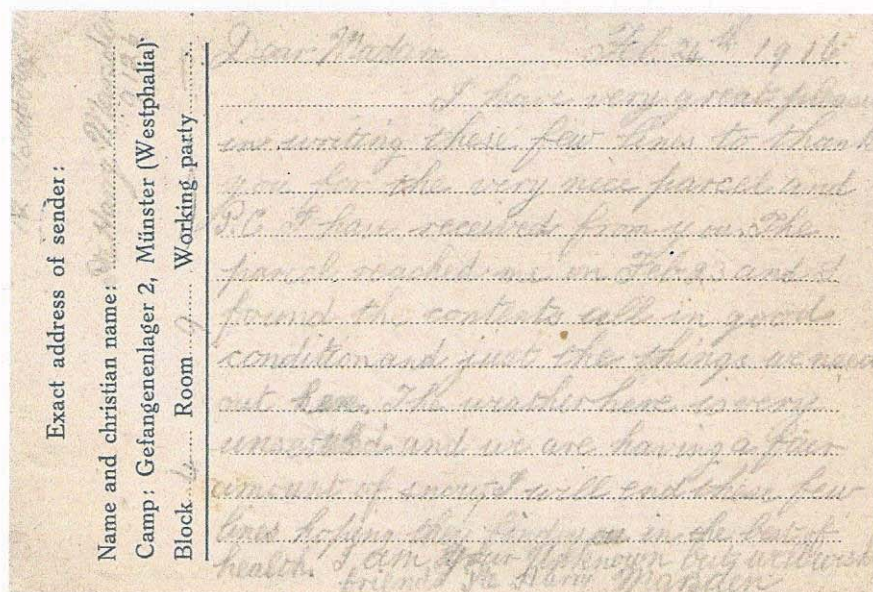 Exact address of sender:
Name and christian name: Pte Harry Marsden
Camp: Gefangenenlager 2, Münster (Westphalia)
Block 4 Room 9 Working party
Dear Madam Feb 24th 1916
I have very great pleasu
in writing these few lines to thank
you for the very nice parcel and
P.C. I have received from you. The
parcel reached me on Feb 23 and I
found the contents all in good
condition and just the things we need
out here. The weather here is very
unsettled and we are having a fair
amount of snow, I will end these few
lines hoping they find you in the best of
health. I am your Unknown but wellwish
friend Pte Harry Marsden